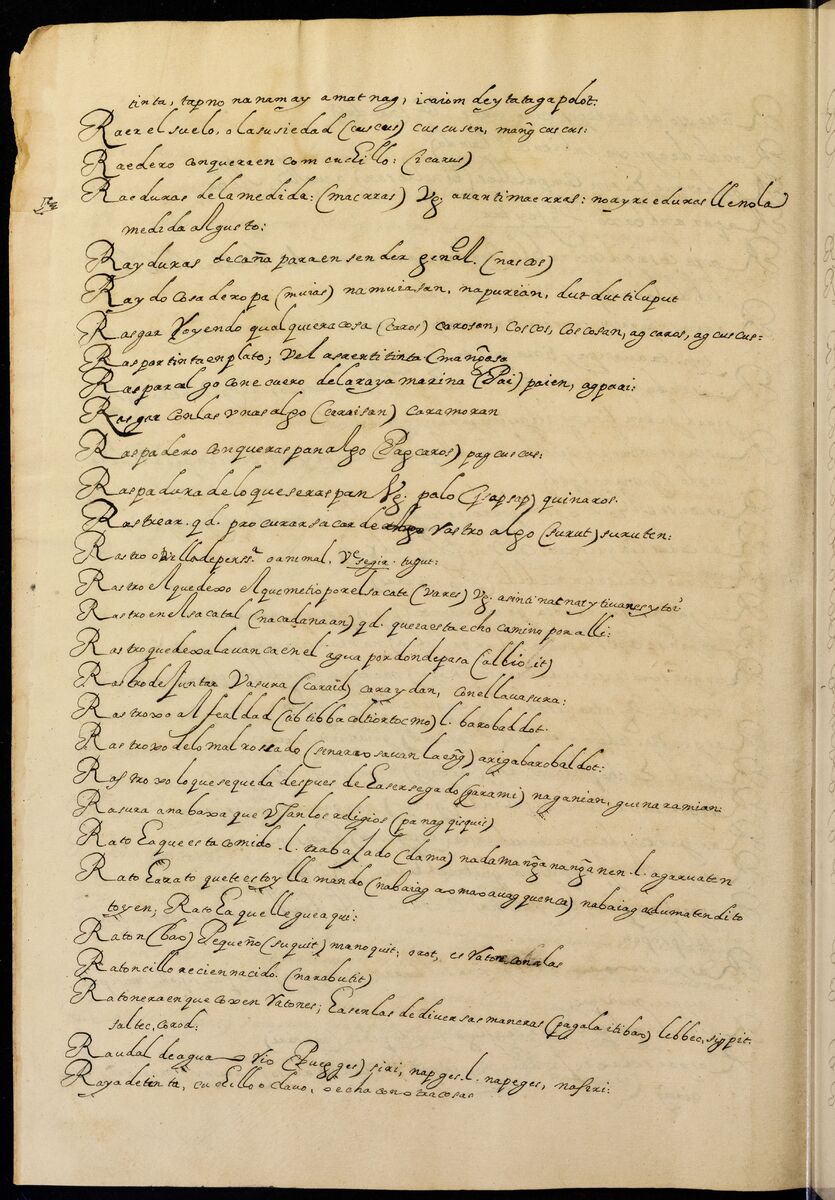 tinta, tap no nanamay amat nag, icaiom dey tataga polot.
Raer el suelo, o la susiedad (cus cus) cus cusen, mang cus cus:
Raedero con que raen com cuchillo: (icarus)
Raeduras de la medida: (macrras) Vg. auantimaerras: no ay reeduras lleno la
medida al gusto:
Rayduras de caña para ensender genĕal. (nascos)
Raydo cosa de ropa (muias) namuiasan, napurian, dut dut til uput
Rasgar Royendo qualquiera cosa (caros) carosan, coscos, coscosan, ag caros, ag cus cus:
Raspar tinta en plato; vel asxenti tinta (
Raspar algo con e cuero de la raya marina (Pai) paien, agpaai:
Rasgar con las vnas algo (caraisan) caramoran
Raspadero con que raspan algo (Pag caros) pag cus cus:
Raspadura de lo que se raspan Vg. palo (sapsap) quinaros.
Rastrear. q.d. procurar sacar de Rastro algo (surut) suruten:
Rastro o huella de perss.ᵃ o animal, Ve segir. tugut:
Rastro el que dexo el que metio por el sacate (vares) Vg. asinti nat nat y tiuares y toi
Rastro en el sacatal (nacadanaan) q.d. que ra esta echo camino por alli:
Rastro que dexa la vanca en el agua por donde pasa (alliolit)
Rastro de juntar Vasura (caraid) caraydan, con ella vasura:
Rastroxo al fealdad (ab tibba coltiortocmo) l. barobaddot.
Rastroxo de lo mal rossado (sinaraosauan la eng) arigabarobaldot:
Rastroxo lo que se queda despues de haser segado (garami) naganian, guinaramian:
Rasura anabaxa que vsan los religios (panag quisquis)
Rato ha que esta comido .l. trabajado (dama) nadamanga nanganen .l. agaruaten
Rato ha rato que te estoy llamando (nabaiag aomaoauag quenca) nabaiag adumatendito
toyen; Rato ha que llegue aqui:
Raton (bao) Pequeño (suquit) manoquit; orot, es Raton con alas
Ratoncillo recien nacido. (narabutit)
Ratonera en que coxen Ratones; hasenlas de diuersas maneras (pagala itibao) lebbeo, sippit.
saltec, corod:
Raudal de agua o rio (Pueg ges) siri, napges .l. napeges, nasiri:
Raya de tinta, cuchillo o clauo, o echa con otra cosas